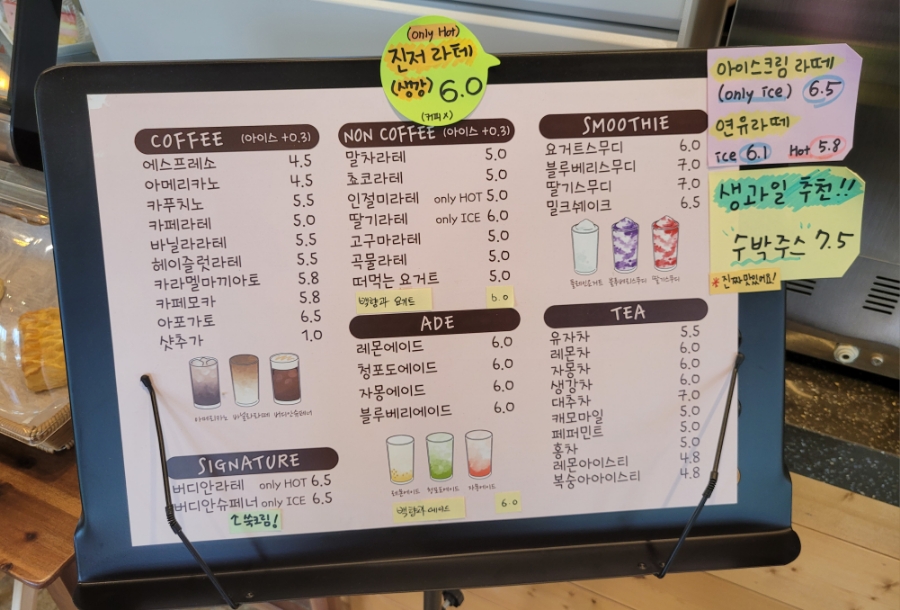 (only Hot)
진저 라떼
(생강) 6.0
(커피 X)
COFFEE (아이스 +0.3)
에스프레소 4.5
아메리카노 4.5
카푸치노 5.5
카페라떼 5.0
바닐라라떼 5.5
헤이즐럿라떼 5.5
카라멜마끼아토 5.8
카페모카 5.8
아포가토 6.5
샷추가 1.0
아메리카노 바닐라라떼 버디안슈페너
SIGNATURE
버디안라떼 only HOT 6.5
버디안슈페너 only ICE 6.5
쑥크림!
NON COFFEE (아이스 +0.3)
말차라떼 5.0
쵸코라떼 5.0
인절미라떼 only HOT 5.0
딸기라떼 only ICE 6.0
고구마라떼 5.0
곡물라떼 5.0
떠먹는 요거트 5.0
백향과 요거트 6.0
ADE
레몬에이드 6.0
청포도에이드 6.0
자몽에이드 6.0
블루베리에이드 6.0
레몬에이드 청포도에이드 자몽에이드
백향과 에이드 6.0
SMOOTHIE
요거트스무디 6.0
블루베리스무디 7.0
딸기스무디 7.0
밀크쉐이크 6.5
블루베리스무디 딸기스무디
TEA
유자차 5.5
레몬차 6.0
자몽차 6.0
생강차 6.0
대추차 7.0
캐모마일 5.0
페퍼민트 5.0
홍차 5.0
레몬아이스티 4.8
복숭아아이스티 4.8
아이스크림 라떼
(only ice) 6.5
연유라떼
ice 6.1 Hot 5.8
생과일 추천!!
수박주스 7.5
※ 진짜 맛있어요!